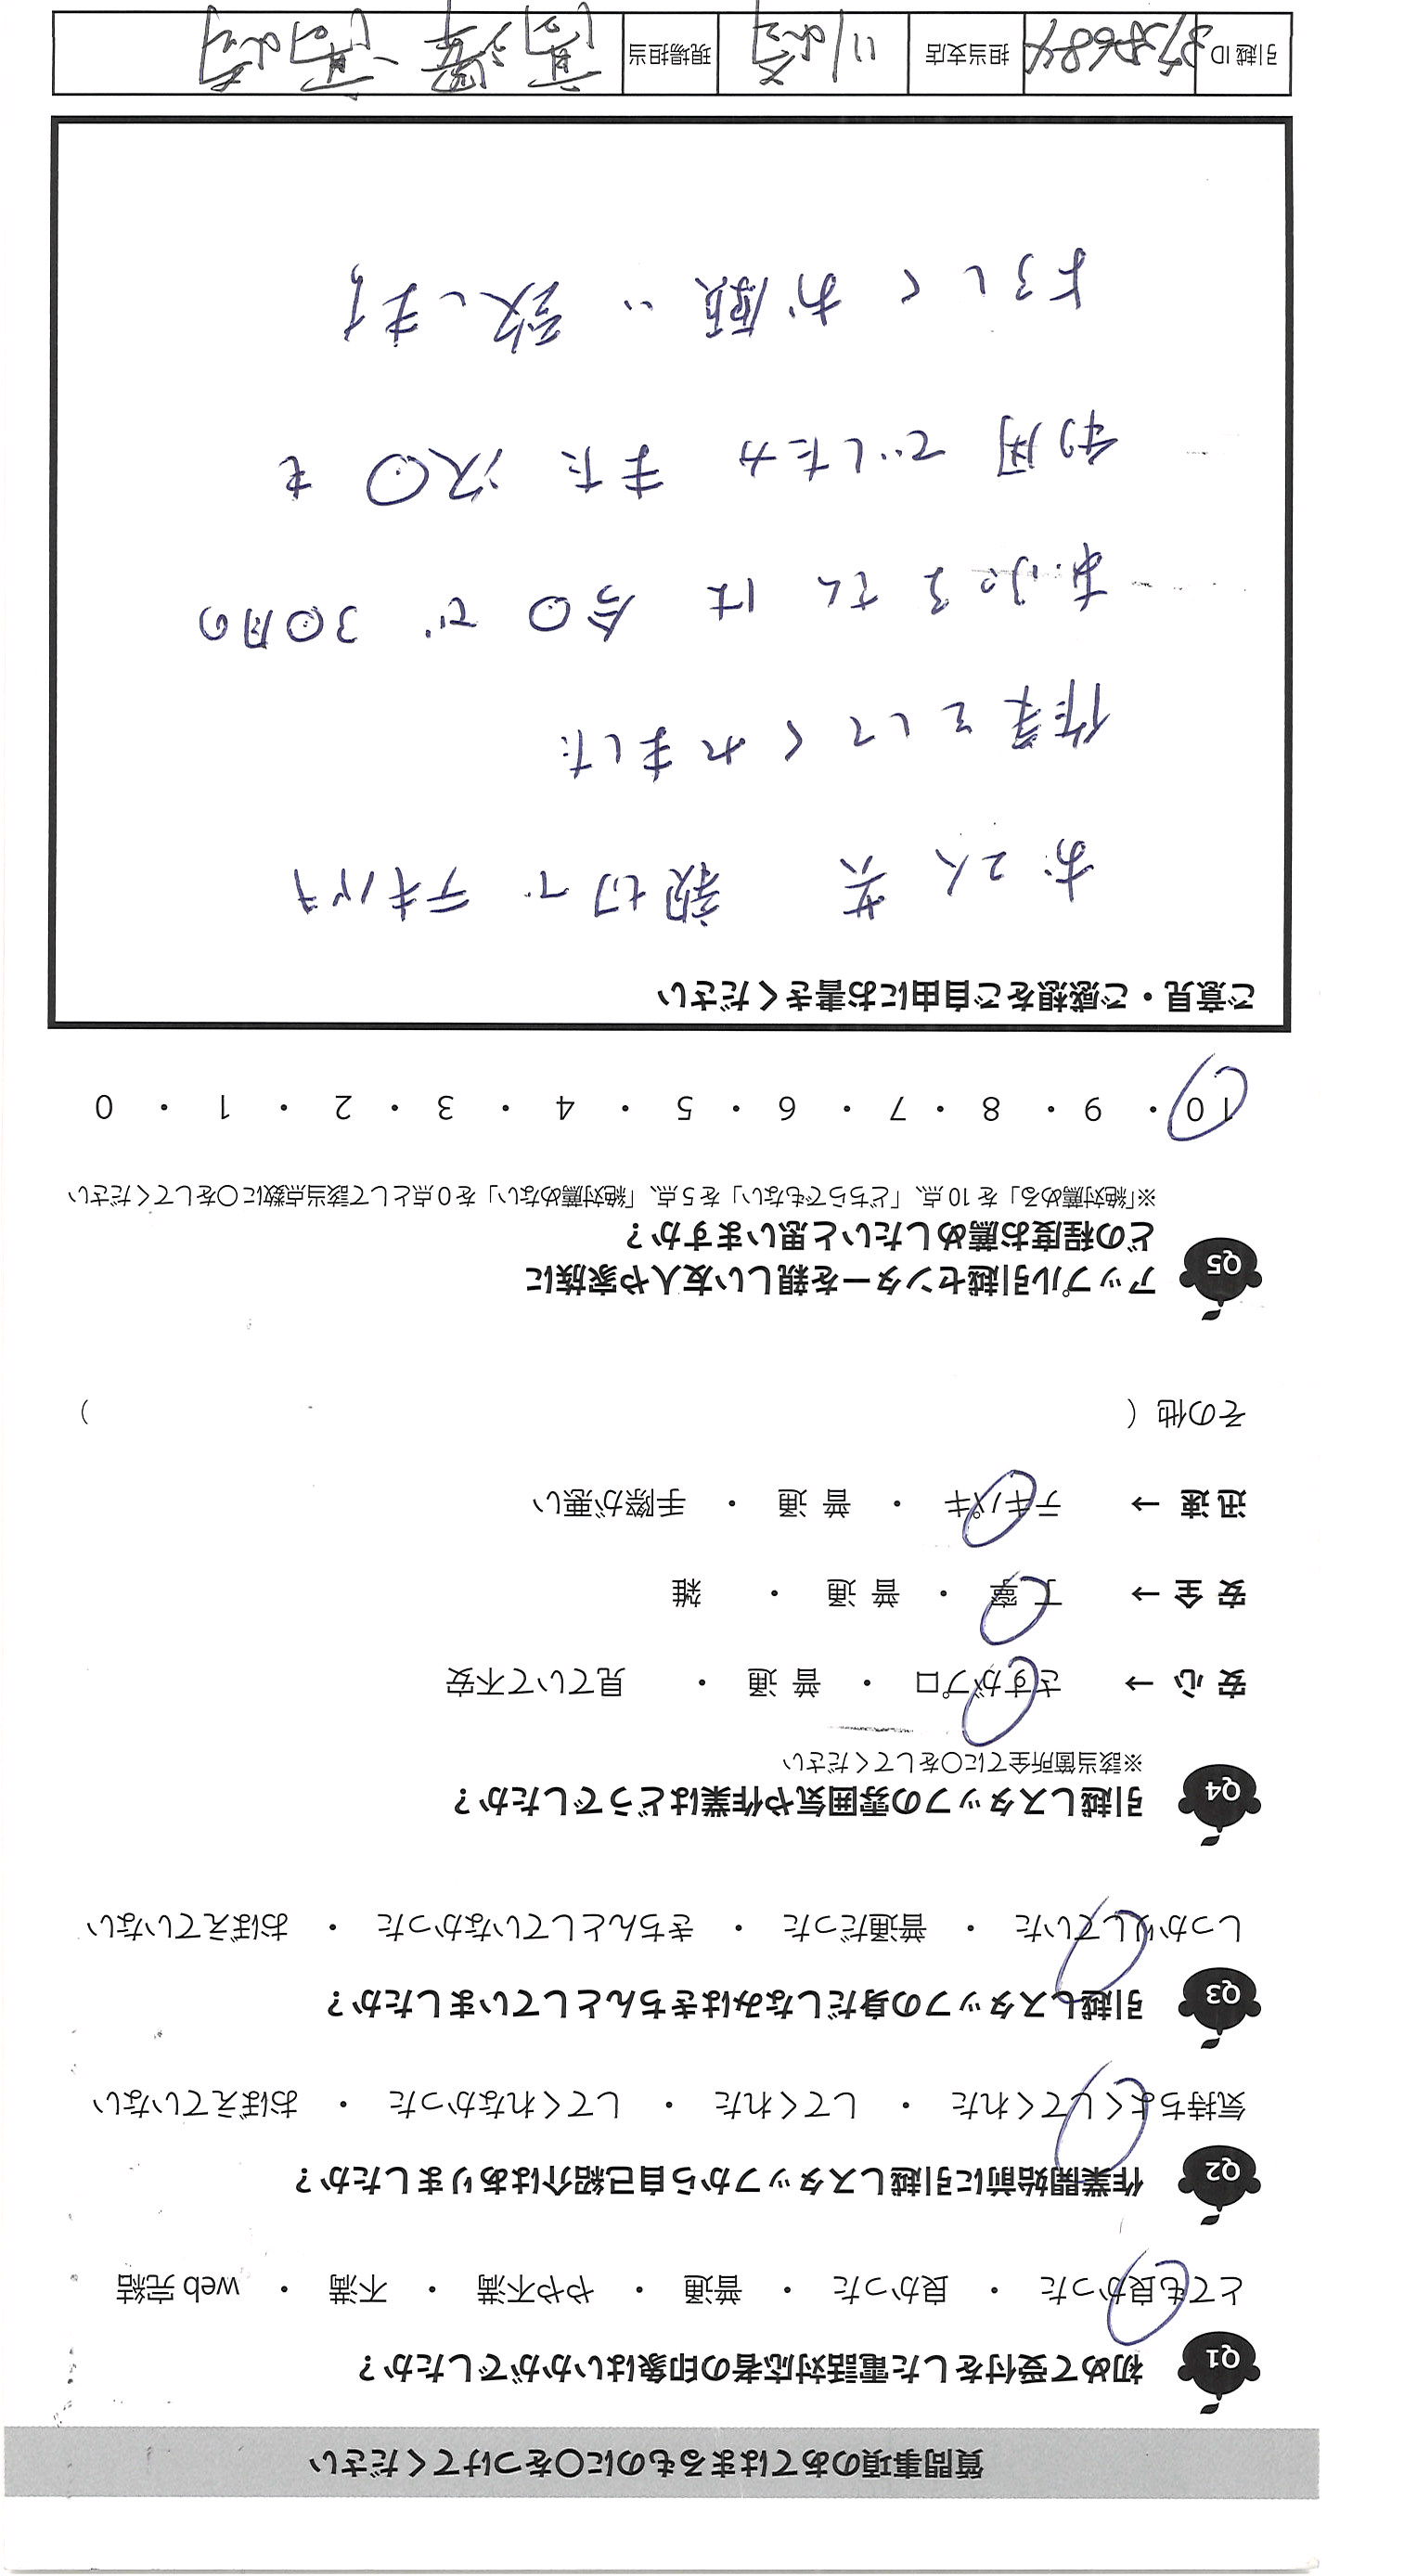 質問事項のあてはまるものに○をつけてください
Q1 初めて受付をした電話対応者の印象はいかがでしたか？
とても良かった ・ 良かった ・ 普通 ・ やや不満 ・ 不満 ・ web 完結
Q2 作業開始前に引越しスタッフから自己紹介はありましたか？
気持ちよくしてくれた ・ してくれた ・ してくれなかった ・ おぼえていない
Q3 引越しスタッフの身だしなみはきちんとしていましたか？
しっかりしていた ・ 普通だった ・ きちんとしていなかった ・ おぼえていない
Q4 引越しスタッフの雰囲気や作業はどうでしたか？
※該当箇所全てに○をしてください
安心 → さすがプロ ・ 普通 ・ 見ていて不安
安全 → 丁寧 ・ 普通 ・ 雑
迅速 → テキパキ ・ 普通 ・ 手際が悪い
その他（ ）
Q5 アップル引越センターを親しい友人や家族に
どの程度お薦めしたいと思いますか？
※「絶対薦める」を 10 点、「どちらでもない」を 5 点、「絶対薦めない」を 0 点として該当点数に○をしてください
10 ・ 9 ・ 8 ・ 7 ・ 6 ・ 5 ・ 4 ・ 3 ・ 2 ・ 1 ・ 0
ご意見・ご感想をご自由にお書きください
お2人 共 親切で テキパキ
作業をしてくれました
あっぷるさんは 今回で 3回目の
利用でしたが また次回も
よろしくお願い致します
引越 ID 担当支店 川崎 現場担当